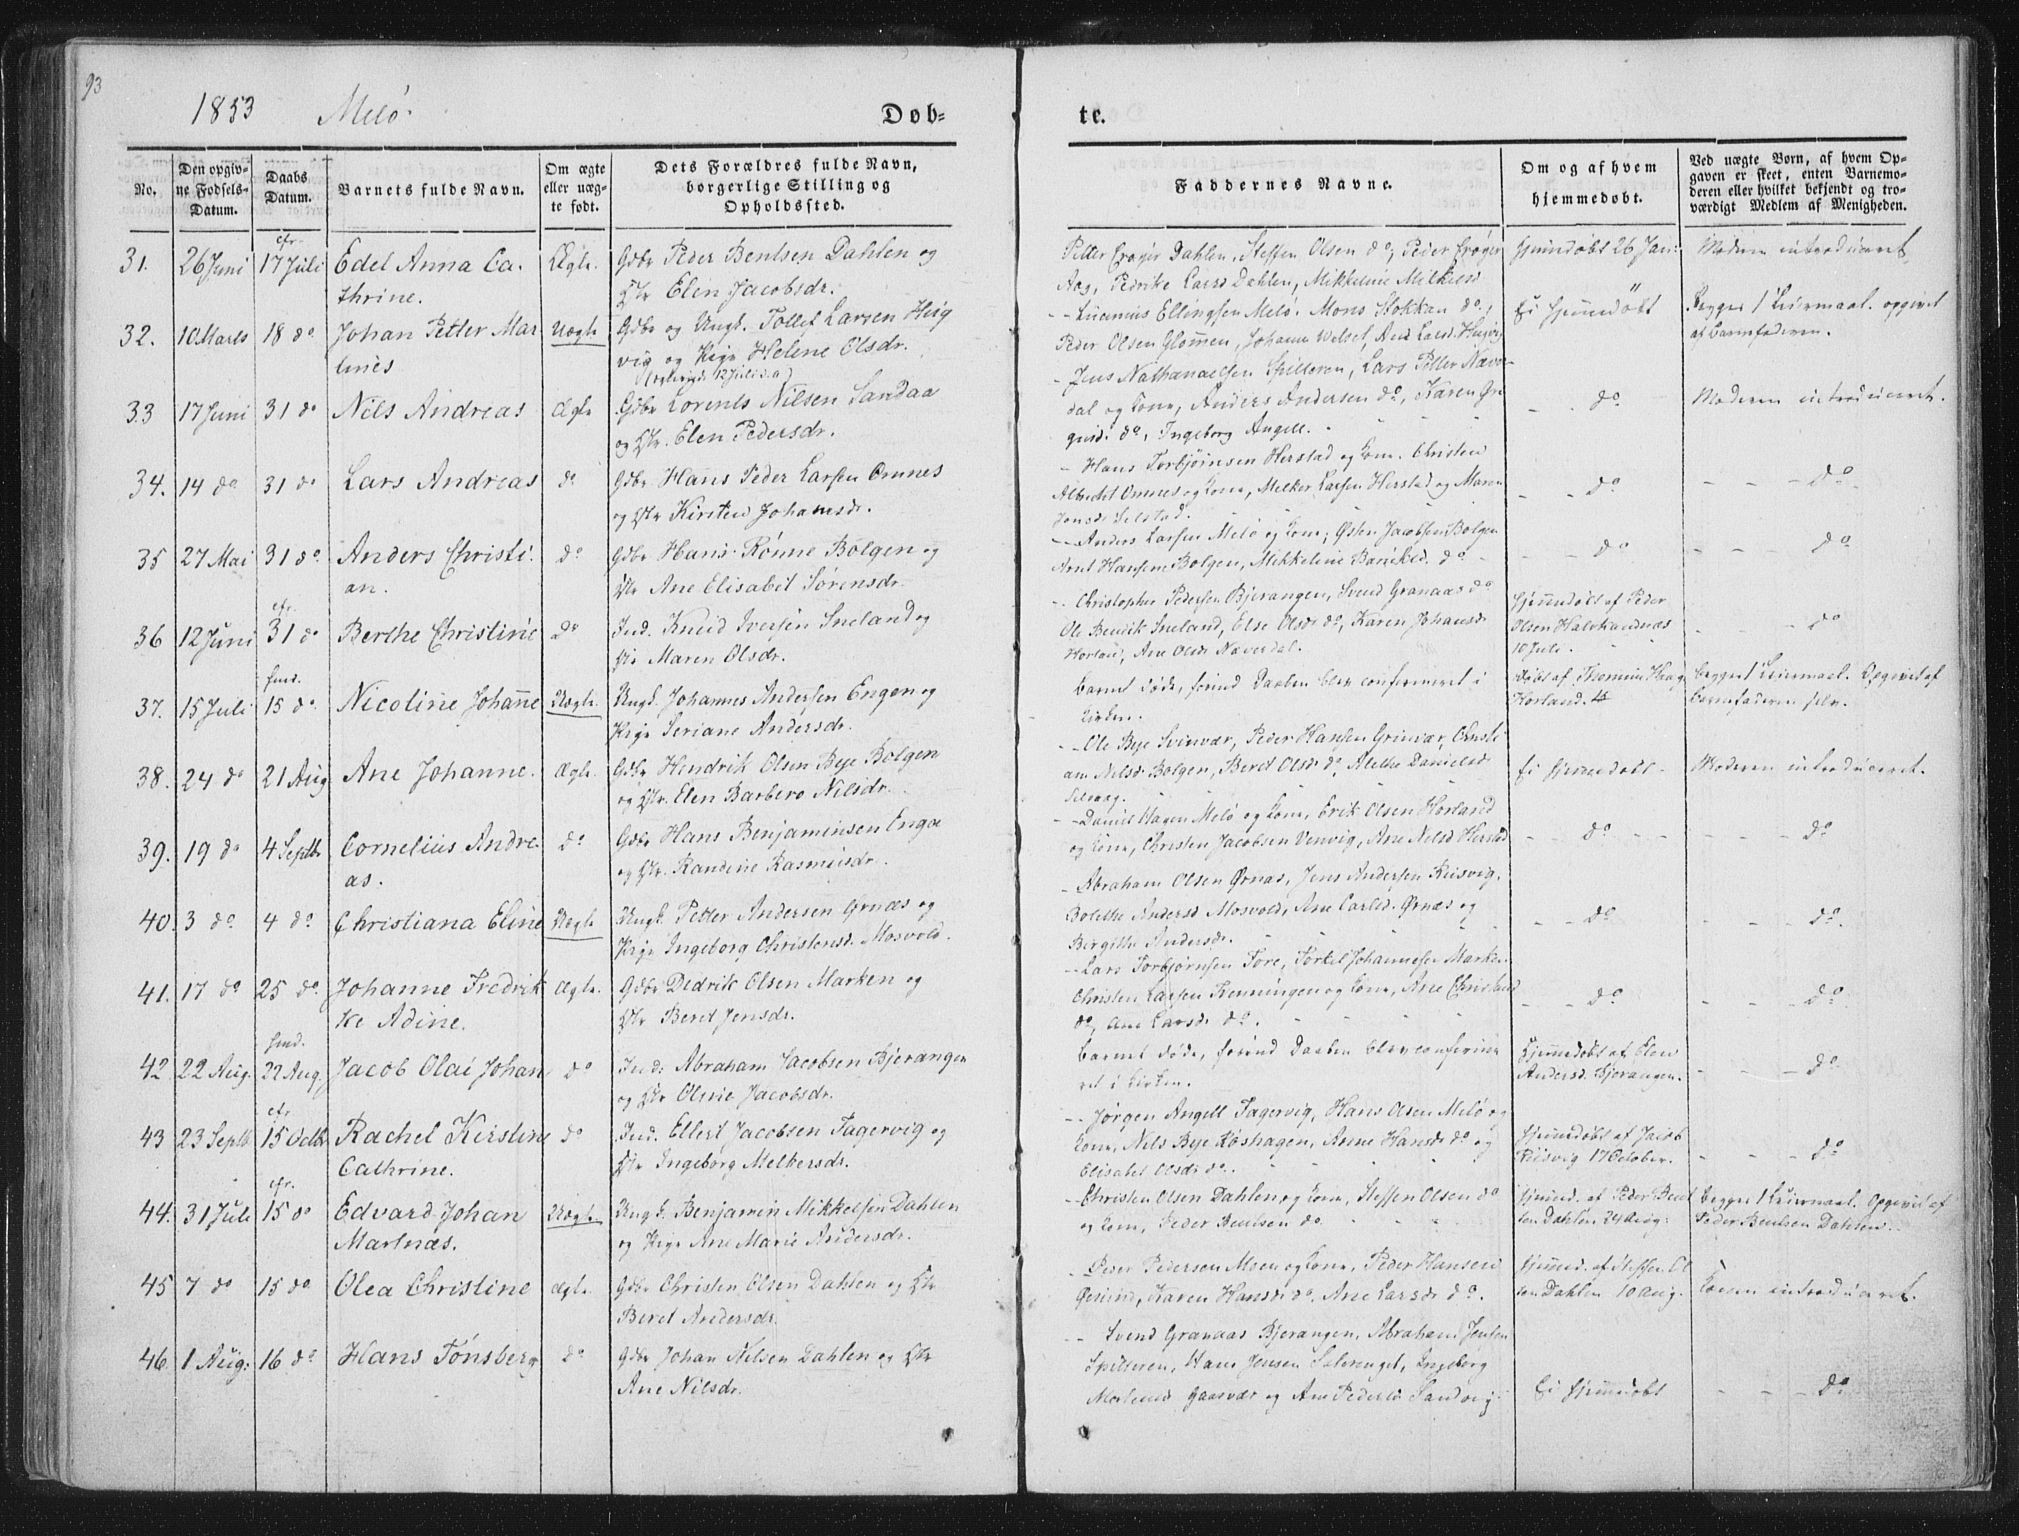 93
1853 Melö. Døb= te.
No.
Den opgiv-
ne Fødsels-
Datum.
Daabs
Datum.
Barnets fulde Navn.
Om ægte
eller uæg-
te født.
Dets Forældres fulde Navn,
borgerlige Stilling og
Opholdssted.
Faddernes Navne.
Om og af hvem
hjemmedøbt.
Ved uægte Børn, af hvem Op-
gaven er skeet, enten Barnemo-
deren eller hvilket bekjendt og tro-
værdigt Medlem af Menigheden.
31. 26 Juni cfr. 17 Juli Edel Anna Ca-
thrine.
Ægte.
Gdbr Peder Bentsen Dahlen og
Hr Elen Jacobsdr.
Petter Crøger Dahlen, Steffen Olsen do, Peder Crøger
Aag, Pedrike Larsd Dahlen, Mikkeline Mikkelsd
Hjemdøbt 26 Jan:
Moderen introduceret
32. 10 Marts 18 do Johan Petter Mar
tines
Uægte
Gdbr og Ungk. Tollef Larsen Heig
vig og Pige Helene Olsdr.
(ægteviede 12 Juli d.a.)
Lucanus Ellingsen Melö. Mons Stokkan do,
Peder Olsen Glommen, Johanna Welset, Ane Larsd. Husvig
Ei hjemdøbt
Begges 1 Leiermaal. opgivet
af barnefaderen.
33 17 Juni 31 do Nils Andreas Ægte
Gdbr Lorents Nilsen Sandaa
og Hr. Elen Pedersdr.
- Jens Nathanaelsen Spilderen, Lars Petter Næver-
dal og Kone, Anders Andersen do, Karen Gre
gusd. do, Ingeborg Angell.
- - do
Moderen introduceret.
34. 14 do 31 do Lars Andreas do
Gdbr Hans Peder Larsen Omnes
og Hr Kirsten Johansdr.
- Hans Torbjørnsen Herstad og Kone. Christen
Albrigt Omnes og Kone, Melker Larsen Herstad og Maren
Jensdr Selstad.
- - do
- - - do
35 27 Mai 31 do Anders Christi-
an.
do
Gdbr Hans Rønne Bolgen og
Hr Ane Elisabet Sørensdr.
- Anders Larsen Melö og Kone, Østen Jacobsen Bolgen
Arnt Hansen Bolgen, Mikkeline do
- - do
- - - do
36 12 Juni cfr. 31 do Berthe Christine do
Ind. Knud Iversen Sneland og
Hr Maren Olsdr.
- Christopher Pedersen Bjerangen, Svend Granaas do
Ole Bendik Sneland, Else Olsdr do, Karen Johansdr
Horland, Ane Olsdr Næverdal.
Hjemdøbt af Peder
Olsen Halskandnæs
10 Juli.
- - do
37. 15 Juli hmd. 15 do. Nicoline Johanne Uægte.
Ungk. Johannes Andersen Engen og
Pige Seriane Andersdr.
Barnet døde, forind Daaben blev confirmeret i
Kirken.
døbt af Thomine Haag
Horland.
begges 1 Leiermaal. Opgivet af
barnefaderen selv.
38. 24 do 21 Aug Ane Johanne. Ægte.
Gdbr Hendrik Olsen Bye Bolgen
og Hr. Elen Barbero Nilsdr.
- Ole Bye Svinvær, Peder Hansen Grinvær, Christi
ane Nilsdr Bolgen, Beret Olsdr do, Alethe Danielsdr
Selvaag.
Ei hjemdøbt.
Moderen introduceret.
39. 19 do 4 Septbr Cornelius Andre-
as.
do
Gdbr Hans Benjaminsen Enga
og Hr. Randine Rasmusdr.
- Daniel Hagen Melö og Kone, Erik Olsen Horland
og Kone, Christen Jacobsen Venvig, Ane Nilsd Herstad
- - do - -
- - - do
40. 3 do 4 do Christiana Eline Uægte
Ungk. Petter Andersen Ørnæs og
Pige Ingeborg Christensd. Mosvold.
- Abraham Olsen Ørnæs, Jens Andersen Reisvig,
Bolethe Andersd Mosvold, Ane Carlsd. Ørnæs og
Birgithe Andersdr.
- - do
- - do.
41. 17 do 25 do. Johanne Fredrik
ke Adine.
Ægte.
Gdbr Didrik Olsen Marken og
Hr Beret Jensdr.
- Lars Torbjørnsen Tore, Torkel Johannesen Marken
Christen Larsen Kenningen og Kone, Ane Christensd
do, Ane Larsdr do.
- - do
- - - do
42 22 Aug. hmd. 22 Aug. Jacob Olai Johan do
Ind: Abraham Jacobsen Bjerangen
og Hr Oline Jacobsdr.
Barnet døde, forind Daaben blev confirme
ret i Kirken.
Hjemdøbt af Elen
Andersd. Bjerangen.
- - - do
43 23 Septb cfr. 15 Octbr Rachel Kirstine
Cathrine.
do
Ind. Ellert Jacobsen Fagervig og
Hr Ingeborg Melkersdr.
- Jørgen Angell Fagervig, Hans Olsen Melö og
Kone, Nils Bye Røshagen, Anne Hansdr do og
Elisabet Olsdr do.
Hjemdøbt af Jacob
Reisvig 17 October.
- - - do
44. 31 Juli cfr. 15 do Edvard Johan
Martnæs.
Uægte.
Ungk. Benjamin Mikkelsen Dahlen
og Pige Ane Marie Andersdr.
- Christen Olsen Dahlen og Kone, Steffen Olsen do
og Kone, Peder Bentsen do.
hjemd. af Peder Bent
sen Dahlen 24 Aug:
begges 1 Leiermaal. Opgivet af
Peder Bentsen Dahlen.
45 7 do 15 do Olea Christine Ægte.
Gdbr Christen Olsen Dahlen og Hr
Beret Andersdr.
- Peder Pedersen Moen og Kone, Peder Hansen
Karen Hansdr do, Ane Larsdr do.
hjemmd. af Steffen Ol
sen Dahlen 10 Aug.
Konen introduceret.
46. 1 Aug: 16 do Hans Tønsberg do
Gdbr Johan Nilsen Dahlen og Hr
Ane Nilsdr.
- Svend Granaas Bjerangen, Abraham Jensen
Spilderen, Hans Jensen Selvenget, Ingeborg
Gaasvær og Ane Pedersdr Sandvig.
Ei hjemdøbt
- - - do